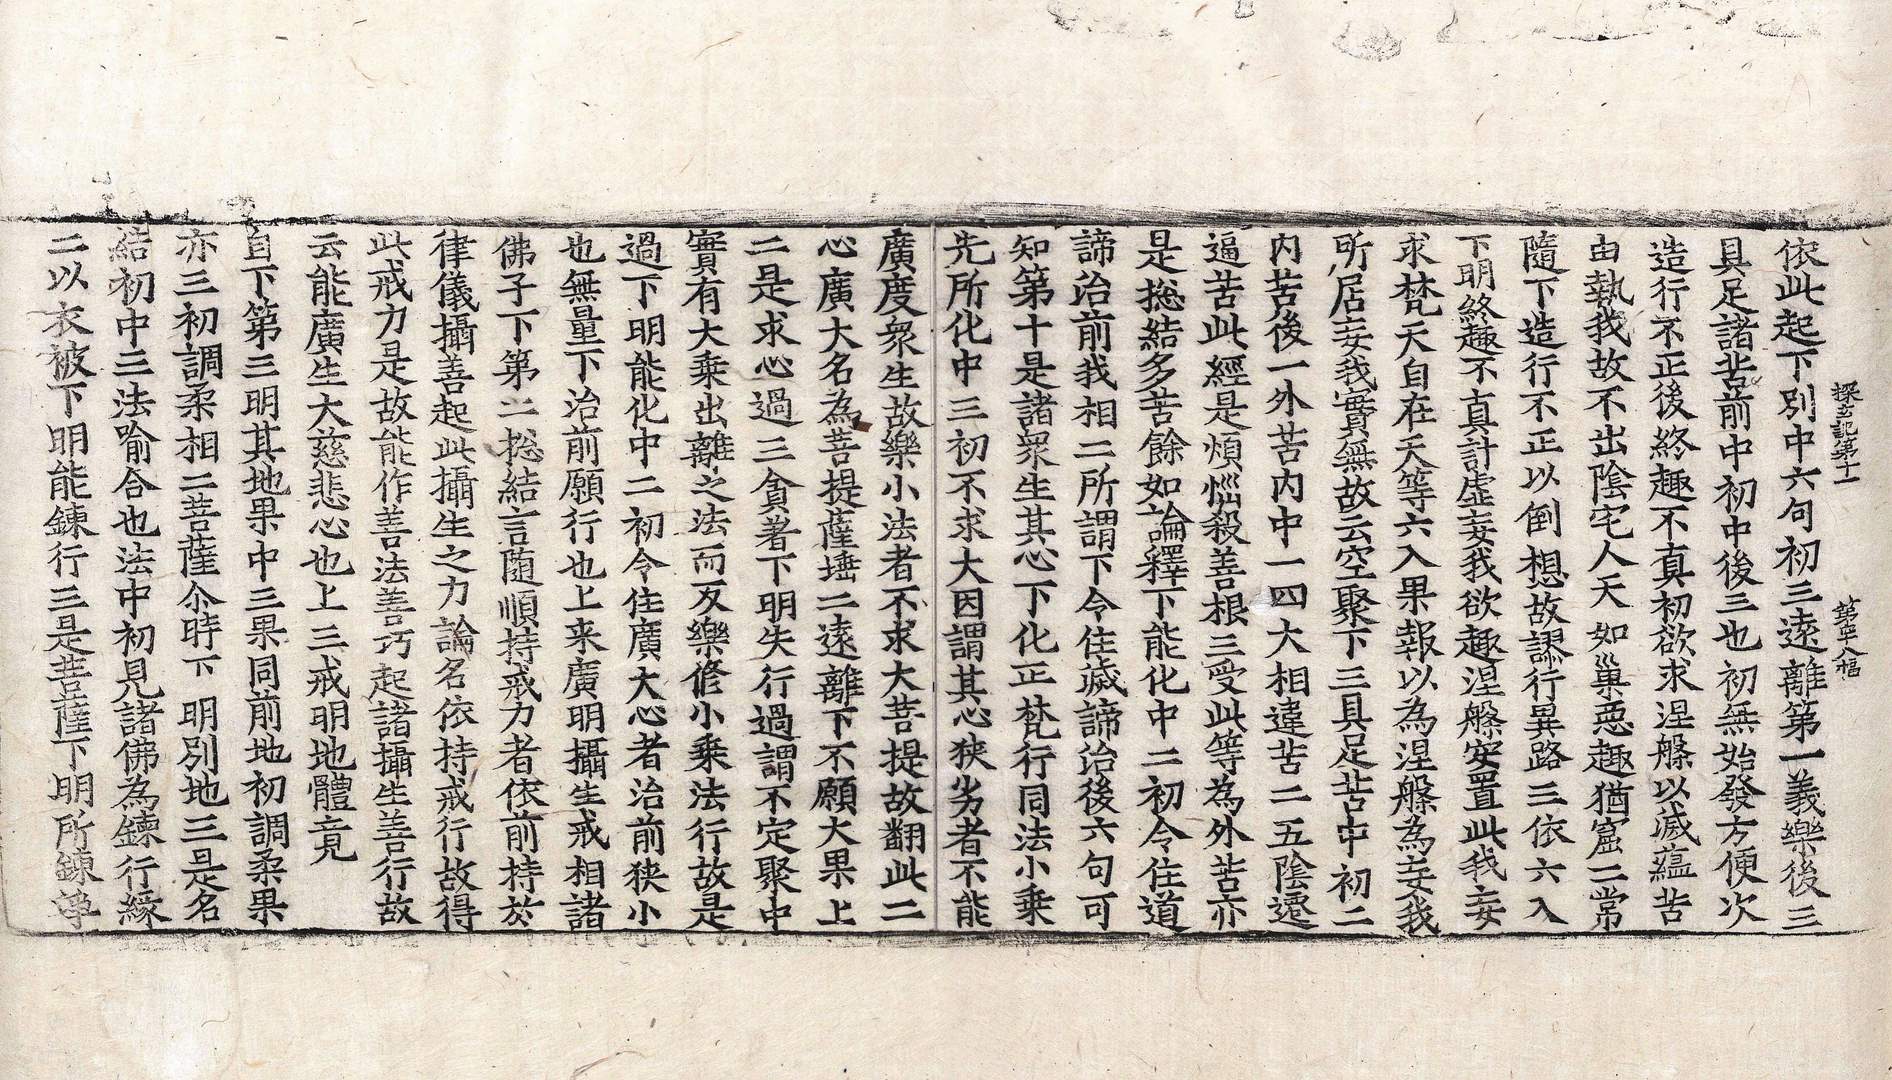 依此起下別中六句初三遠離第一義樂後三
探玄記第十一
具足諸苦前中初中後三也初無始發方便次
造行不正後終趣不真初欲求涅槃以滅蘊苦
由執我故不出陰宅人天如巢惡趣猶窟二常
隨下造行不正以倒想故謬行異路三依六入
下明終趣不真計虛妄我欲趣涅槃安置此我妄
求梵天自在天等六入果報以為涅槃為妄我
所居妄我實無故云空聚下三具足苦中初二
內苦後一外苦內中一四大相違苦二五陰遷
逼苦此經是煩惱殺善根三受此等為外苦亦
是揔結多苦餘如論釋下能化中二初令住道
諦治前我相二所謂下令住滅諦治後六句可
知第十是諸眾生其心下化正梵行同法小乗
先所化中三初不求大因謂其心狹劣者不能
廣度眾生故樂小法者不求大菩提故翻此二
心廣大名為菩提薩埵二遠離下不願大果上
二是求心過三貪著下明失行過謂不定聚中
實有大乗出離之法而反樂修小乗法行故是
過下明能化中二初令住廣大心者治前狹小
也無量下治前願行也上来廣明攝生戒相諸
佛子下第二揔結言隨順持戒力者依前持於
律儀攝善起此攝生之力論名依持戒行故得
此戒力是故能作善法善巧起諸攝生善行故
云能廣生大慈悲心也上三戒明地體竟
自下第三明其地果中三果同前地初調柔果
亦三初調柔相二菩薩尒時下明別地三是名
結初中三法喻合也法中初見諸佛為鍊行緣
二以衣被下明能鍊行三是菩薩下明所鍊淨